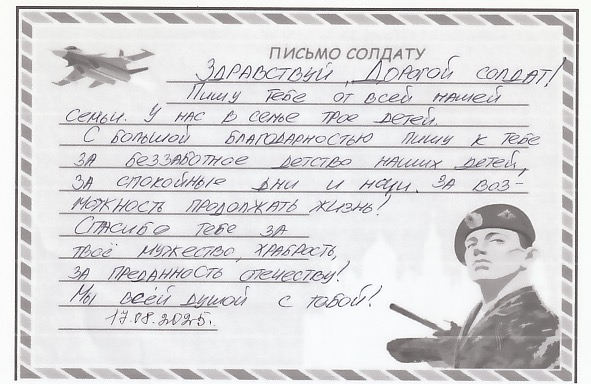 ПИСЬМО СОЛДАТУ
ЗДРАВСТВУЙ, ДОРОГОЙ СОЛДАТ!
Пишу тебе от всей нашей
семьи. У нас в семье трое детей.
С большой благодарностью пишу к тебе
за беззаботное детство наших детей,
за спокойные дни и ночи. За воз-
можность продолжать жизнь!
Спасибо тебе за
твоё мужество, храбрость,
за преданность отечеству!
Мы всей душой с тобой!
17.08.2025.